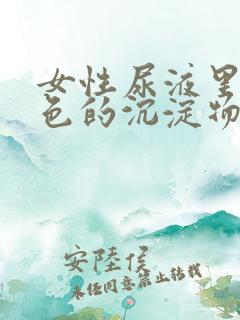 女性尿液里
色的沉淀物
安陸侯
未经同意禁止转载